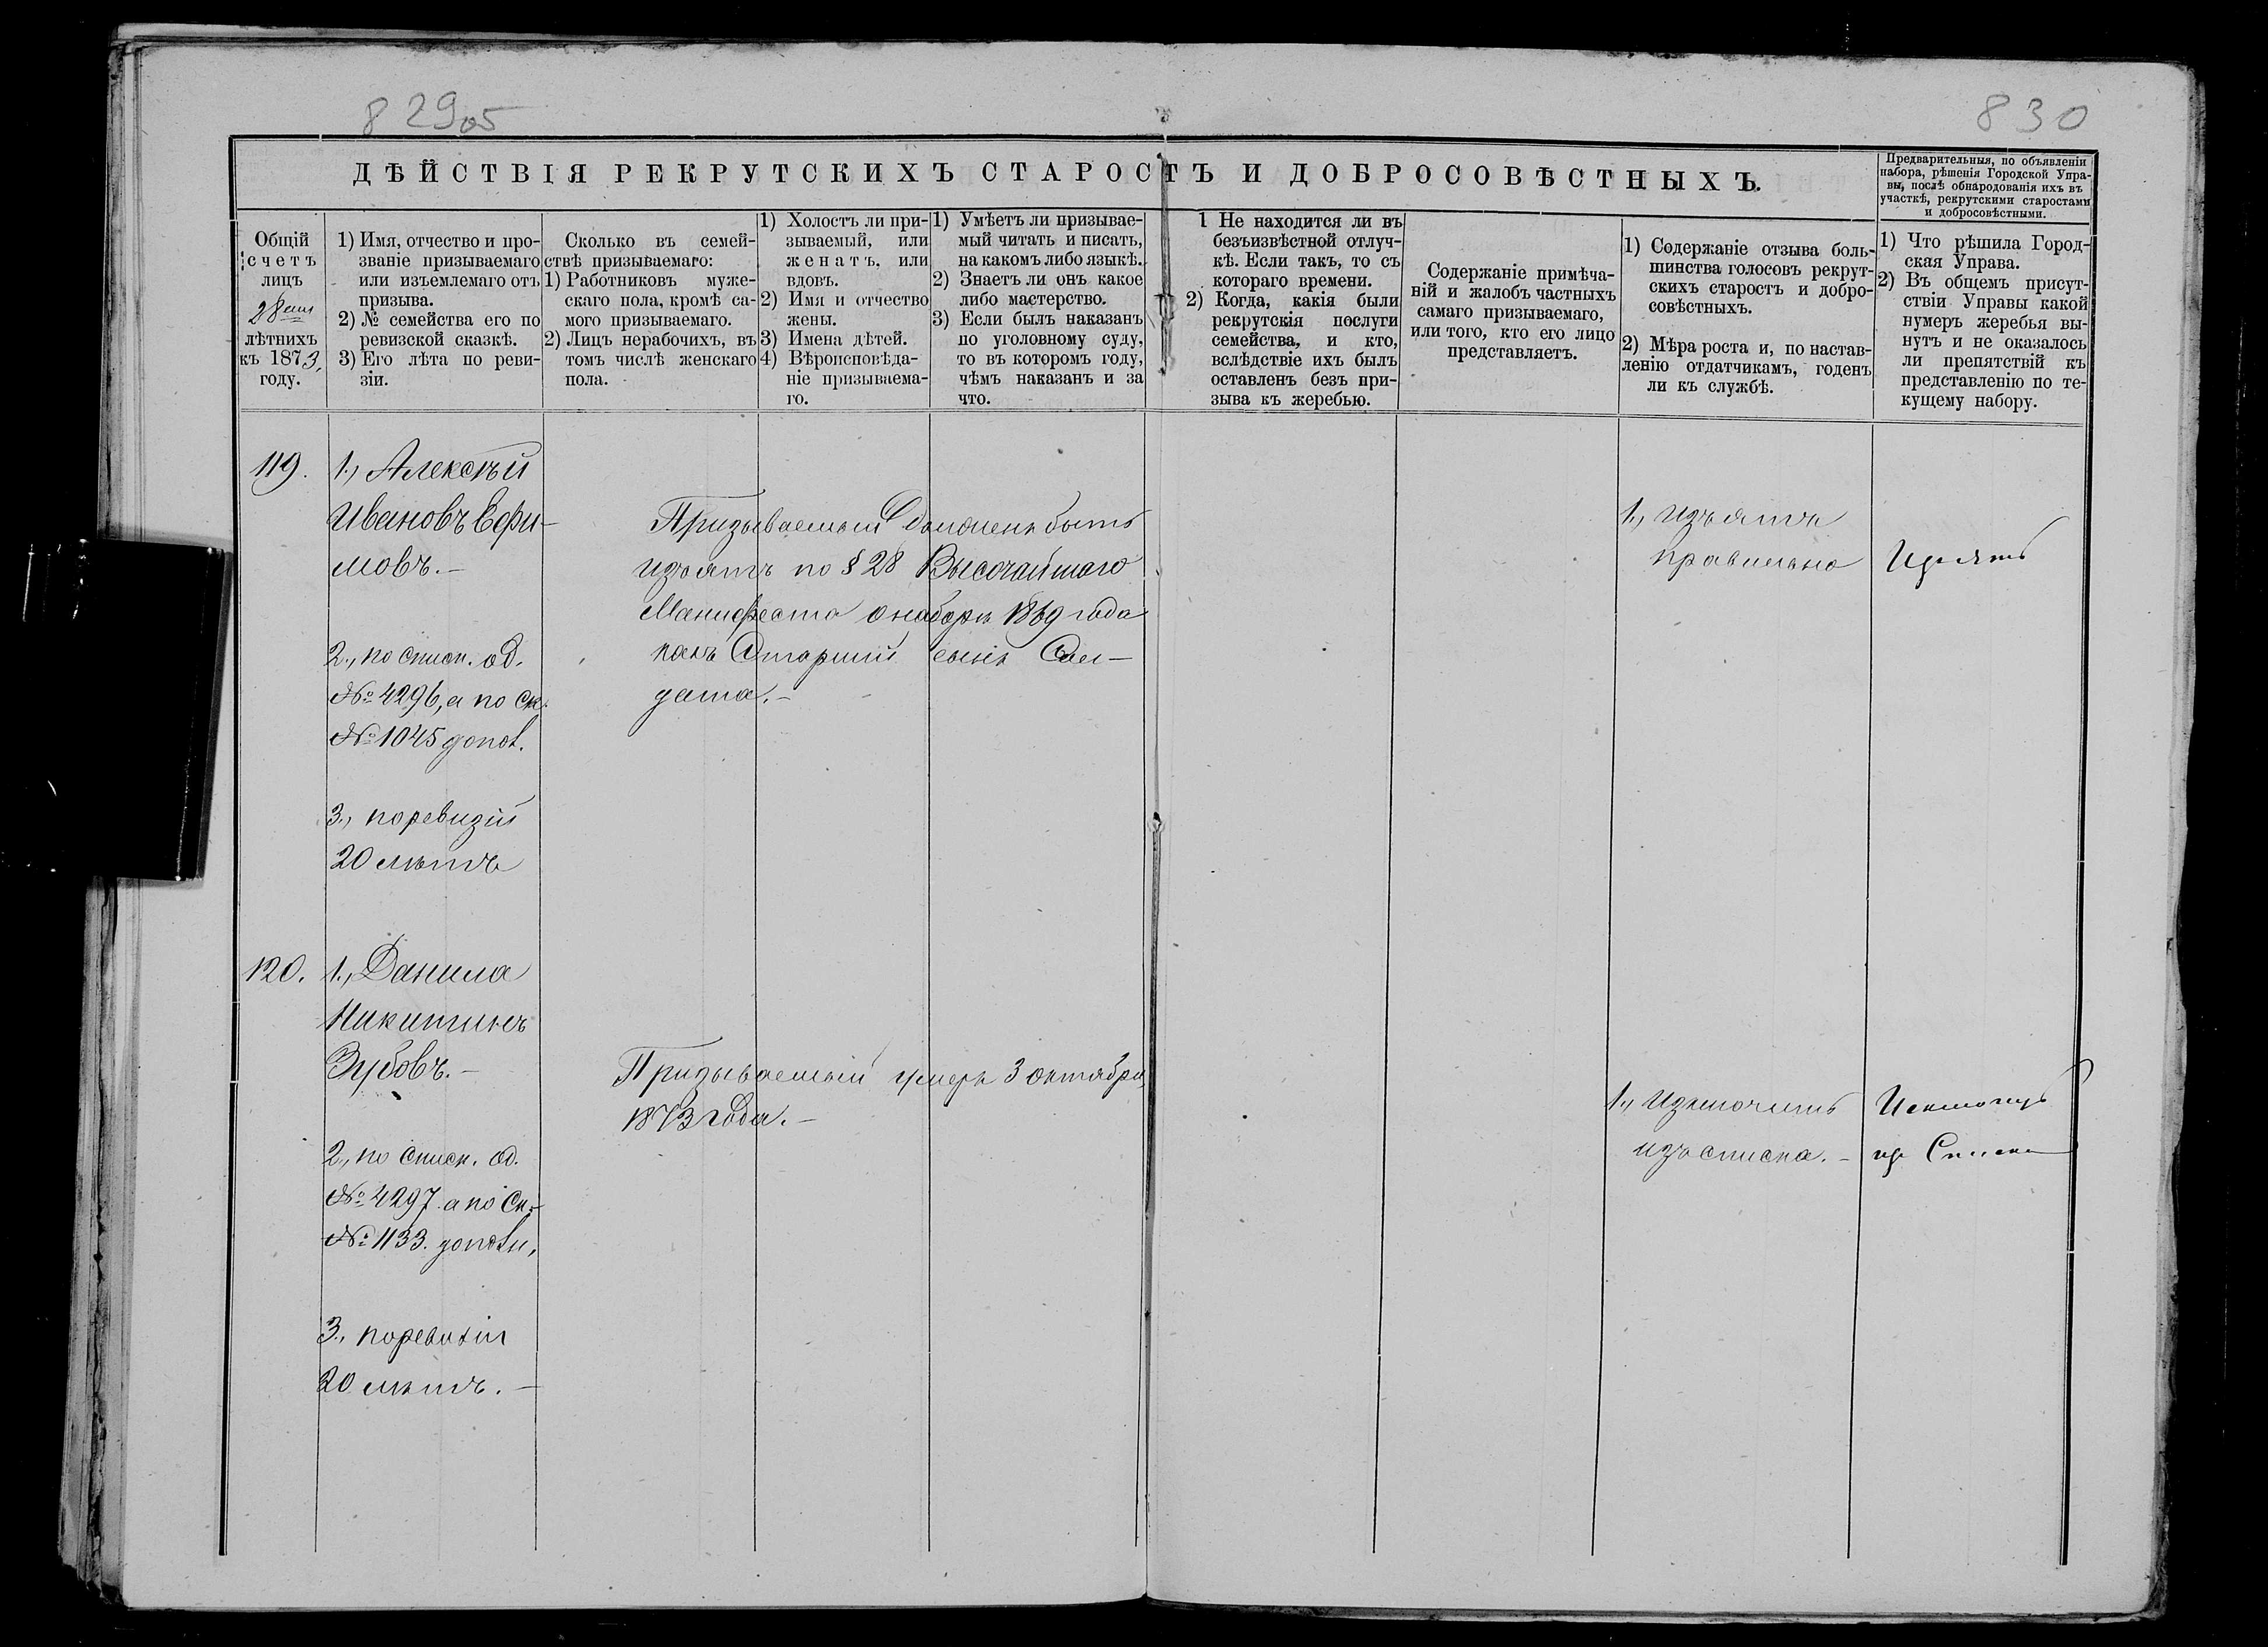 829об
830
ДѢЙСТВІЯ РЕКРУТСКИХЪ СТАРОСТЪ И ДОБРОСОВѢСТНЫХЪ.
Предварительныя, по объявленіи
набора, рѣшенія Городской Упра-
вы, послѣ обнародованія ихъ въ
участкѣ, рекрутскими старостами
и добросовѣстными.
Общій
счетъ
лицъ
28ми
лѣтнихъ
къ 1873,
году.
1) Имя, отчество и про-
званіе призываемаго
или изъемлемаго отъ
призыва.
2) № семейства его по
ревизской сказкѣ.
3) Его лѣта по реви-
зіи.
Сколько въ семей-
ствѣ призываемаго:
1) Работниковъ муже-
скаго пола, кромѣ са-
мого призываемаго.
2) Лицъ нерабочихъ, въ
томъ числѣ женскаго
пола.
1) Холостъ ли при-
зываемый, или
женатъ, или
вдовъ.
2) Имя и отчество
жены.
3) Имена дѣтей.
4) Вѣроисповѣда-
ніе призываема-
го.
1) Умѣетъ ли призывае-
мый читать и писать,
на какомъ либо языкѣ.
2) Знаетъ ли онъ какое
либо мастерство.
3) Если былъ наказанъ
по уголовному суду,
то въ которомъ году,
чѣмъ наказанъ и за
что.
1 Не находится ли въ
безъизвѣстной отлуч-
кѣ. Если такъ, то съ
котораго времени.
2) Когда, какія были
рекрутскія послуги
семейства, и кто,
вслѣдствіе ихъ былъ
оставленъ безъ при-
зыва къ жеребью.
Содержаніе примѣча-
ній и жалобъ частныхъ
самаго призываемаго,
или того, кто его лицо
представляетъ.
1) Содержаніе отзыва боль-
шинства голосовъ рекрут-
скихъ старостъ и добро-
совѣстныхъ.
2) Мѣра роста и, по настав-
ленію отдатчикамъ, годенъ
ли къ службѣ.
1) Что рѣшила Город-
ская Управа.
2) Въ общемъ присут-
ствіи Управы какой
нумеръ жеребья вы-
нутъ и не оказалось
ли препятствій къ
представленію по те-
кущему набору.
119.
1., Алексѣй
Ивановъ Ефи-
мовъ.—
2., по списк. од.
№ 4296, а по ск.
№ 1045 допол.
3., по ревизіи
20 лѣтъ
Призываемый долженъ быть
изъятъ по § 28 Высочайшаго
Манифеста о наборѣ 1869 года
какъ Старшій сынъ Сол-
дата.—
1., Изъятъ
правильно
Изъять
120.
1., Данила
Никитинъ
Зубовъ.—
2., по списк. од.
№ 4297. а по Ск.
№ 1133. дополн,
3., по ревизіи
20 лѣтъ.—
Призываемый умеръ 3 октября
1873 года.—
1., Изключить
изъ списка.—
Исключить
изъ Списка